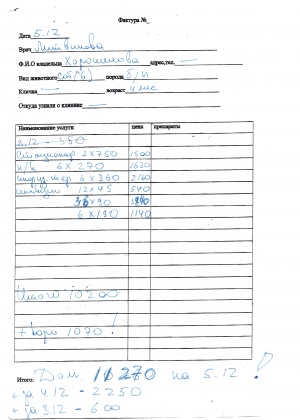 Фактура №_
Дата 5.12
Врач Литвинова
Ф.И.О владельца Хорошилова адрес,тел. —
Вид животного соб(в) порода б/п
Кличка — возраст 4 мес
Откуда узнали о клинике —
Наименование услуги цена препараты
3.12 - 550
Стационар 2 х 750 1500
п/к 6 х 270 1620
6 х 360 2160
инъекции 12 х 45 540
х 90
6 х 190 1140
Итого 10200
+ корм 1070!
Итого: Долг на 5.12!
+ за 4.12 - 2250
+ за 3.12 - 600